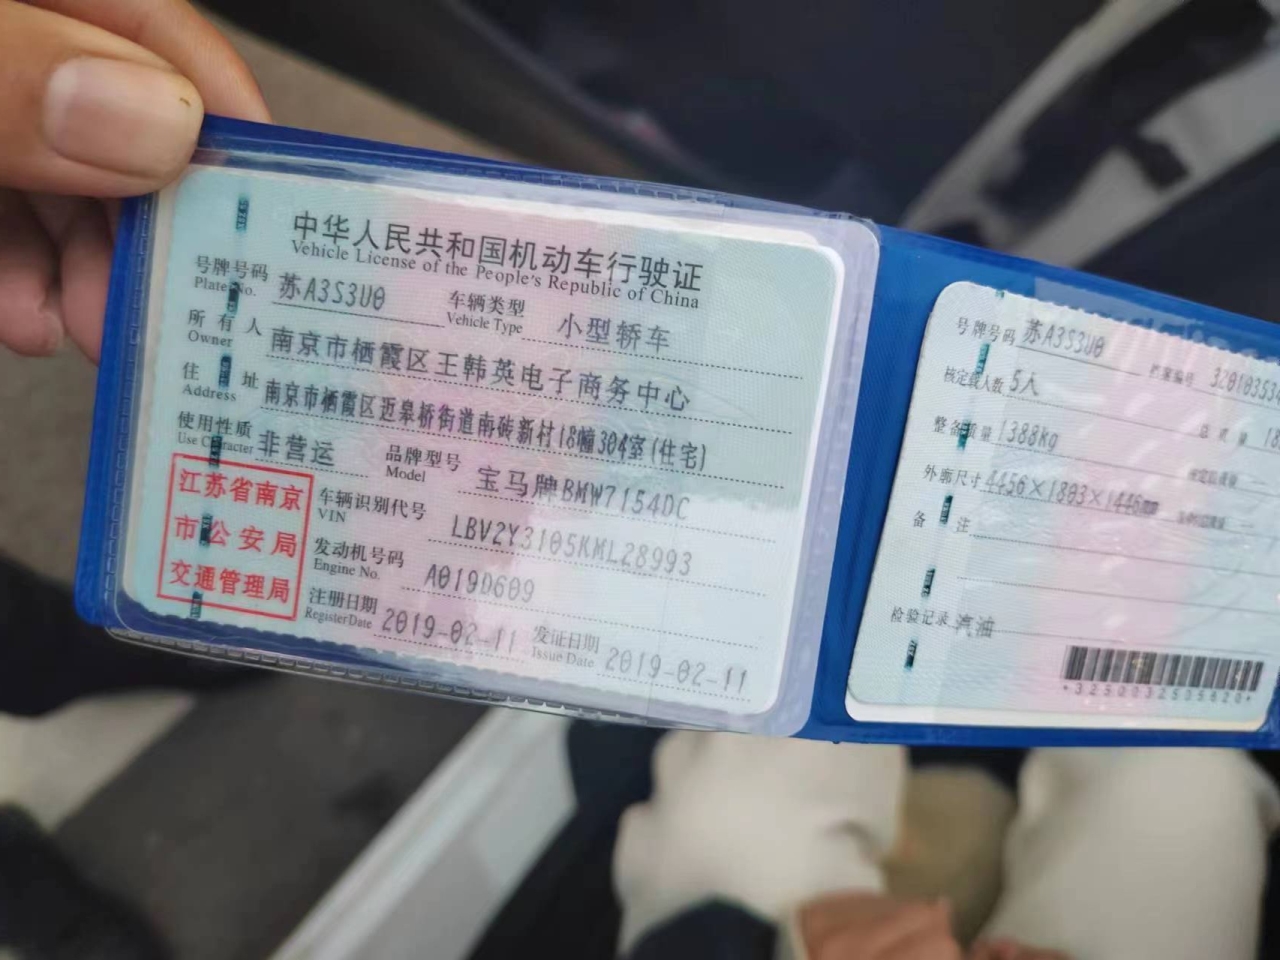 中华人民共和国机动车行驶证
Vehicle License of the People's Republic of China
号牌号码 苏A3S3U0 车辆类型 小型轿车
Plate No. Vehicle Type
所有人 南京市栖霞区王韩英电子商务中心
Owner
住址 南京市栖霞区迈皋桥街道南砖新村18幢304室(住宅)
Address
使用性质 非营运 品牌型号 宝马牌BMW7154DC
Use Character Model
江苏省南京
市公安局
交通管理局
车辆识别代号 LBV2Y3105KML28993
VIN
发动机号码 A019D609
Engine No.
注册日期 2019-02-11 发证日期 2019-02-11
Register Date Issue Date
号牌号码 苏A3S3U0 档案编号 32010353
核定载人数 5人 总质量 18
整备质量 1388kg 核定载质量
外廓尺寸 4456×1803×1446mm
备注
检验记录 汽油